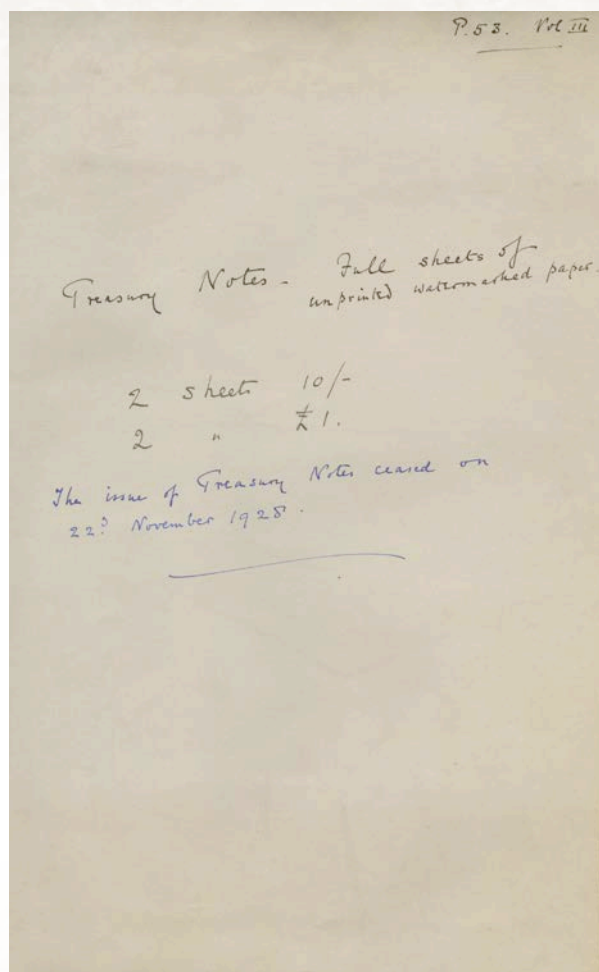 P.53. Vol III
Treasury Notes - Full sheets of
unprinted watermarked paper.
2 sheets 10/-
2 " £1.
The issue of Treasury Notes ceased on
22d November 1928.